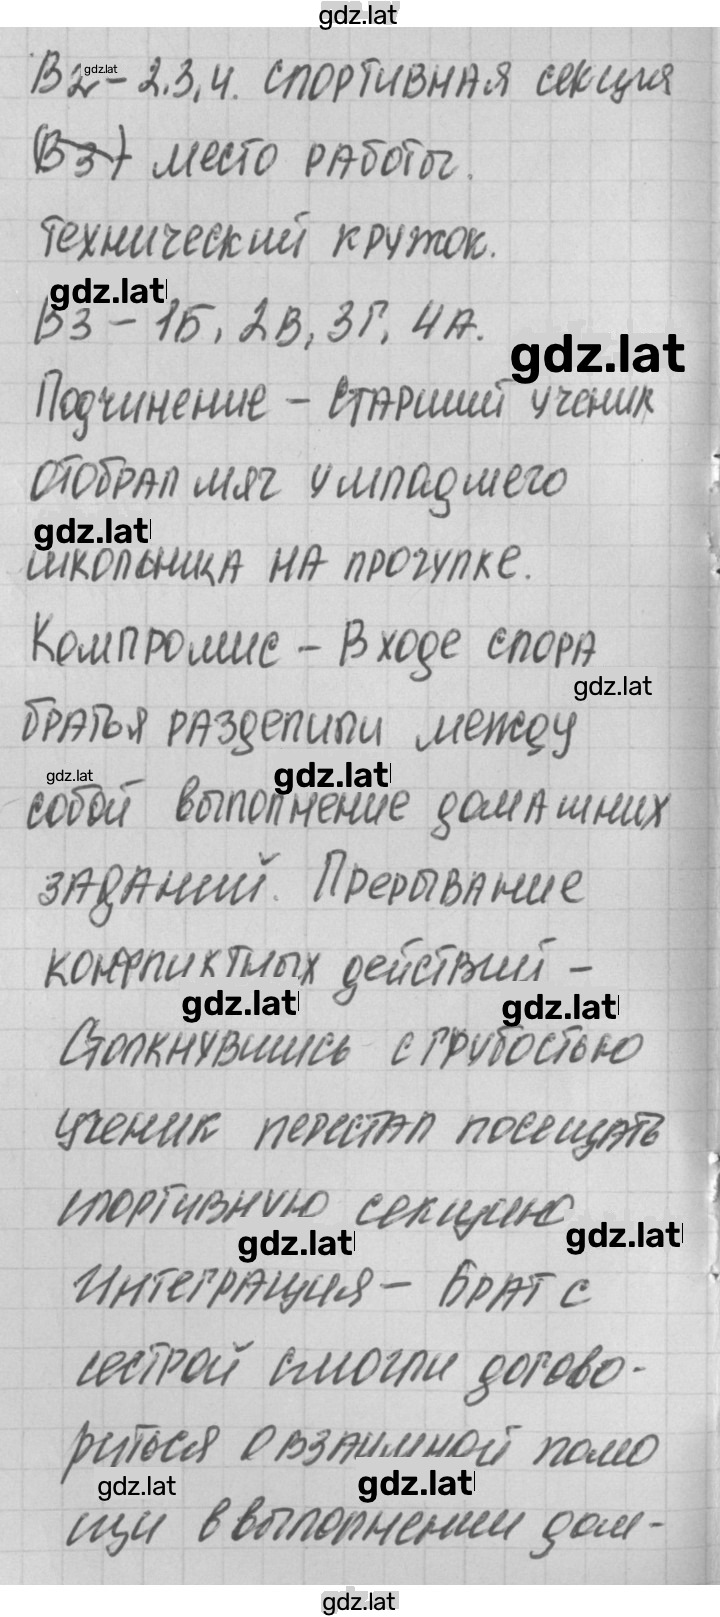 gdz.lat
В2 - 2.3,4. спортивная секция
gdz.lat
(В3) место работы.
технический кружок.
gdz.lat
В3 - 1Б, 2В, 3Г, 4А.
gdz.lat
Подчинение - старший ученик
отобрал мяч у младшего
gdz.lat
школьника на прогулке.
Компромис - В ходе спора
gdz.lat
братья разделили между
gdz.lat
gdz.lat
собой выполнение домашних
заданий. Прерывание
конфликтных действий -
gdz.lat
gdz.lat
Столкнувшись с грубостью
ученик перестал посещать
спортивную секцию
gdz.lat
gdz.lat
Интеграция - Брат с
сестрой смогли догово-
риться о взаимной помо
gdz.lat
gdz.lat
щи в выполнении дом-
gdz.lat